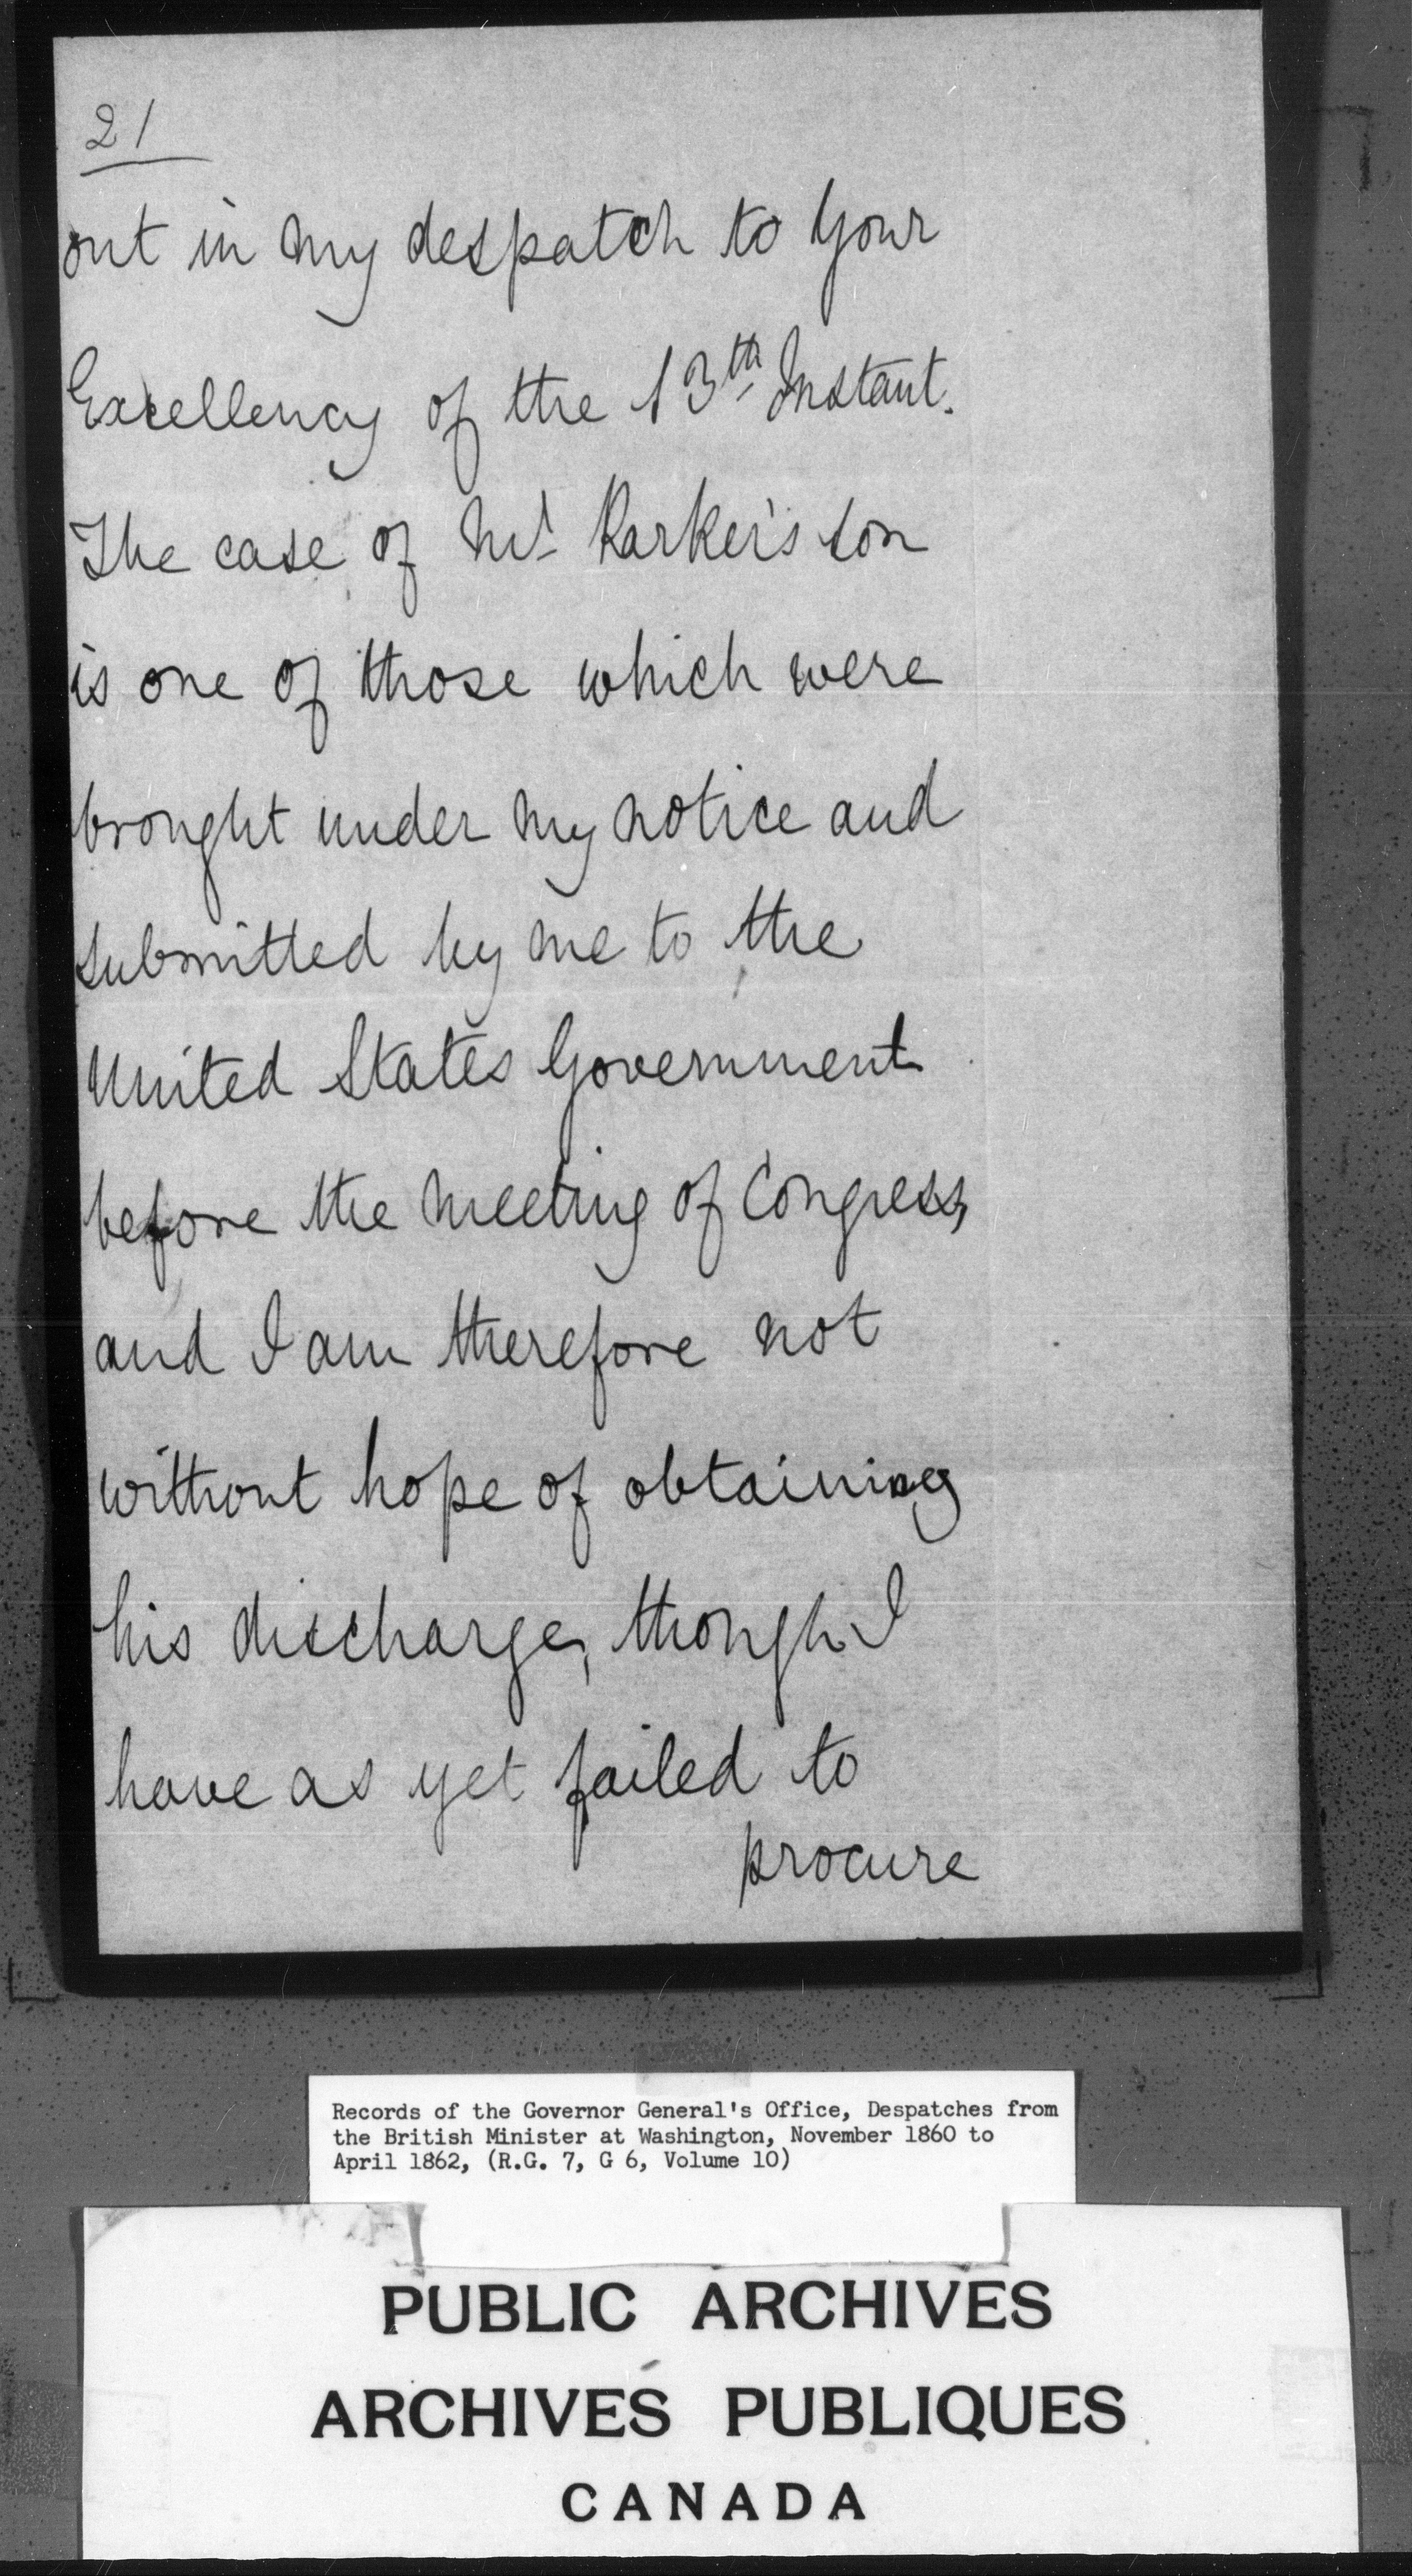 21
out in my despatch to Your
Excellency of the 13th Instant.
The case of Mr Parker's son
is one of those which were
brought under my notice and
submitted by me to the
United States Government
before the meeting of Congress,
and I am therefore not
without hope of obtaining
his discharge, though I
have as yet failed to
procure
Records of the Governor General's Office, Despatches from
the British Minister at Washington, November 1860 to
April 1862, (R.G. 7, G 6, Volume 10)
PUBLIC ARCHIVES
ARCHIVES PUBLIQUES
CANADA